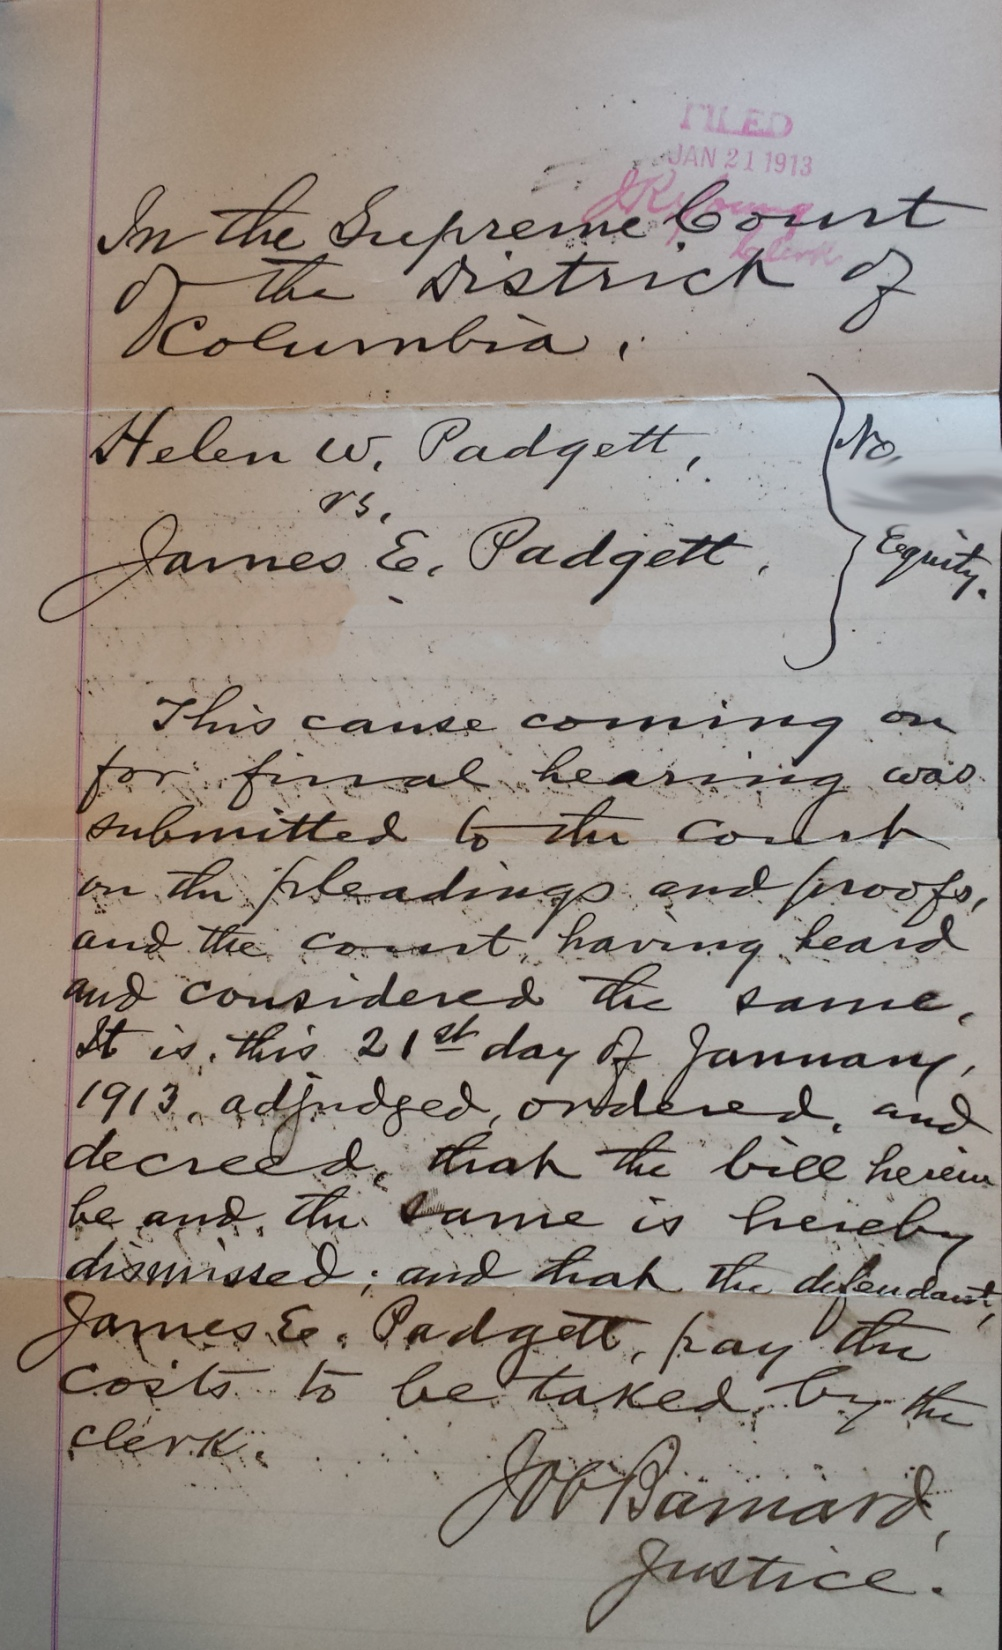 FILED
JAN 21 1913
J R Young
Clerk
In the Supreme Court
of the District of
Columbia.
Helen W. Padgett,
vs.
James E. Padgett.
No.
Equity.
This cause coming on
for final hearing was
submitted to the court
on the pleadings and proofs,
and the court having heard
and considered the same,
It is, this 21st day of January,
1913, adjudged, ordered, and
decreed, that the bill herein
be and, the same is hereby
dismissed; and that the defendant,
James E. Padgett, pay the
costs to be taxed by the
clerk.
Job Barnard,
Justice.